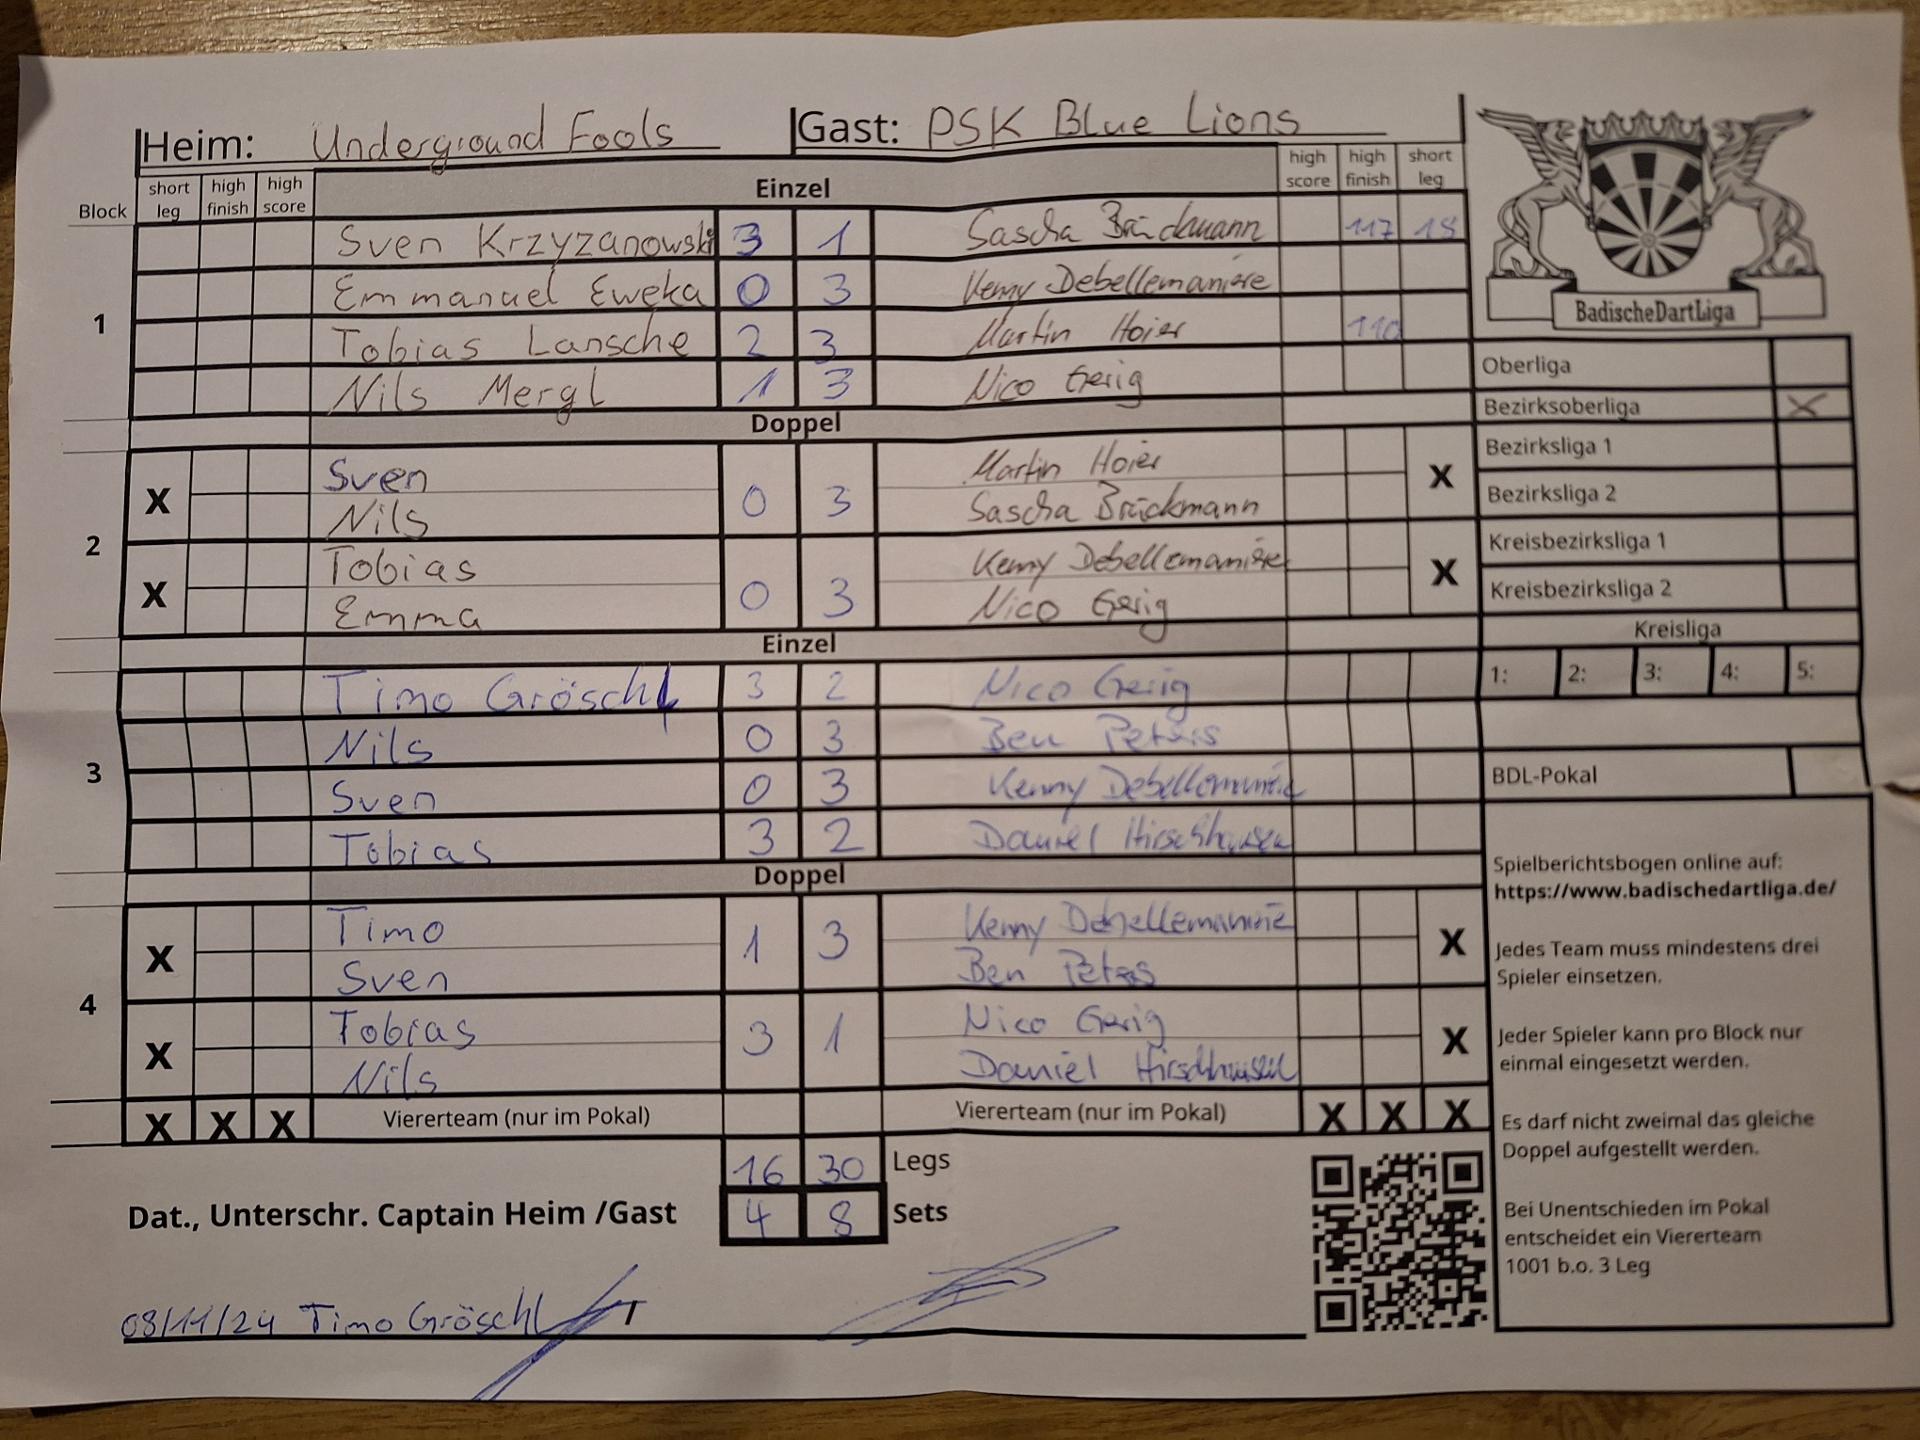 Heim: Underground Fools Gast: PSK Blue Lions
Block short leg high finish high score Einzel high score high finish short leg
1
Sven Krzyzanowski 3 1 Sascha Brückmann 117 18
Emmanuel Eweka 0 3 Kenny Debellemanière
Tobias Lansche 2 3 Martin Hoier 110
Nils Mergl 1 3 Nico Gerig
Doppel
2
X Sven 0 3 Martin Hoier X
Nils Sascha Brückmann
X Tobias 0 3 Kenny Debellemanière X
Emma Nico Gerig
Einzel
3
Timo Gröschl 3 2 Nico Gerig
Nils 0 3 Ben Peters
Sven 0 3 Kenny Debellemanière
Tobias 3 2 Daniel Hirschhausen
Doppel
4
X Timo 1 3 Kenny Debellemanière X
Sven Ben Peters
X Tobias 3 1 Nico Gerig X
Nils Daniel Hirschhausen
X X X Viererteam (nur im Pokal) Viererteam (nur im Pokal) X X X
16 30 Legs
Dat., Unterschr. Captain Heim /Gast 4 8 Sets
08/11/24 Timo Gröschl
BadischeDartLiga
Oberliga
Bezirksoberliga X
Bezirksliga 1
Bezirksliga 2
Kreisbezirksliga 1
Kreisbezirksliga 2
Kreisliga
1: 2: 3: 4: 5:
BDL-Pokal
Spielberichtsbogen online auf:
https://www.badischedartliga.de/
Jedes Team muss mindestens drei
Spieler einsetzen.
Jeder Spieler kann pro Block nur
einmal eingesetzt werden.
Es darf nicht zweimal das gleiche
Doppel aufgestellt werden.
Bei Unentschieden im Pokal
entscheidet ein Viererteam
1001 b.o. 3 Leg